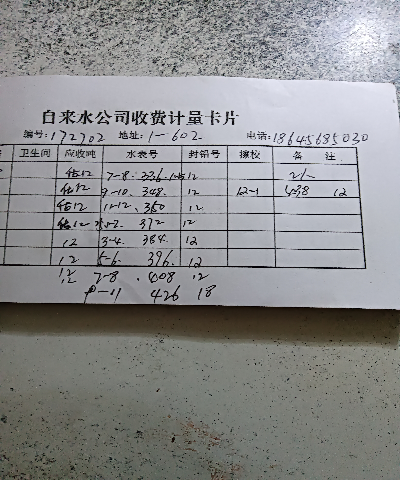 自来水公司收费计量卡片
编号:172702 地址:1-602 电话:18645685030
卫生间 应收吨 水表号 封铅号 换校 备 注
估12 7-8. 336. 12 21-
估12 9-10. 348. 12 12-1 12
估12 11-12. 360 12
估12 372 12
12 3-4. 384. 12
12 5-6. 396. 12
12 7-8 . 408 12
9-11 426 18